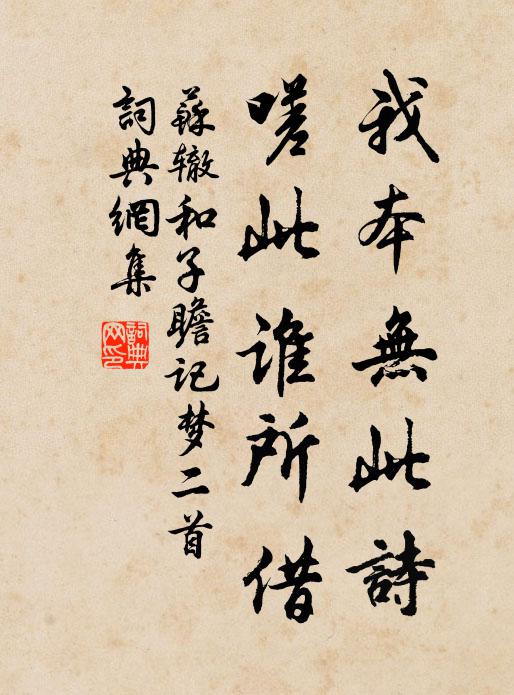 我本無此詩
嗟此谁所借
蘇辙和子瞻记梦二首
詞典網集
詞典
网印